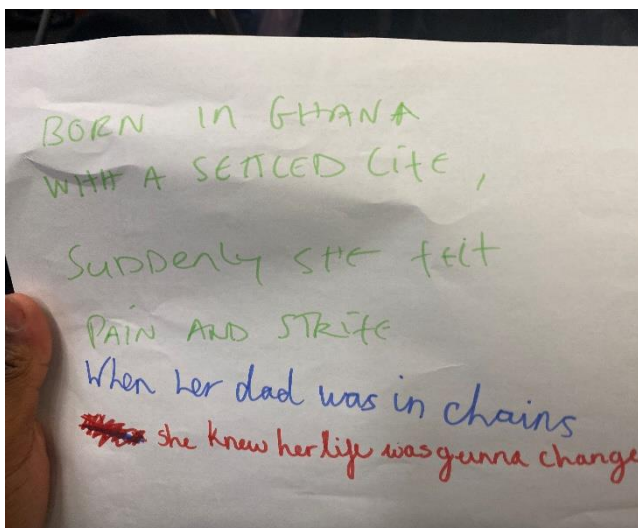 BORN IN GHANA
WITH A SETTLED LIFE,
SUDDENLY SHE FELT
PAIN AND STRIFE
When her dad was in chains
she knew her life was gunna change